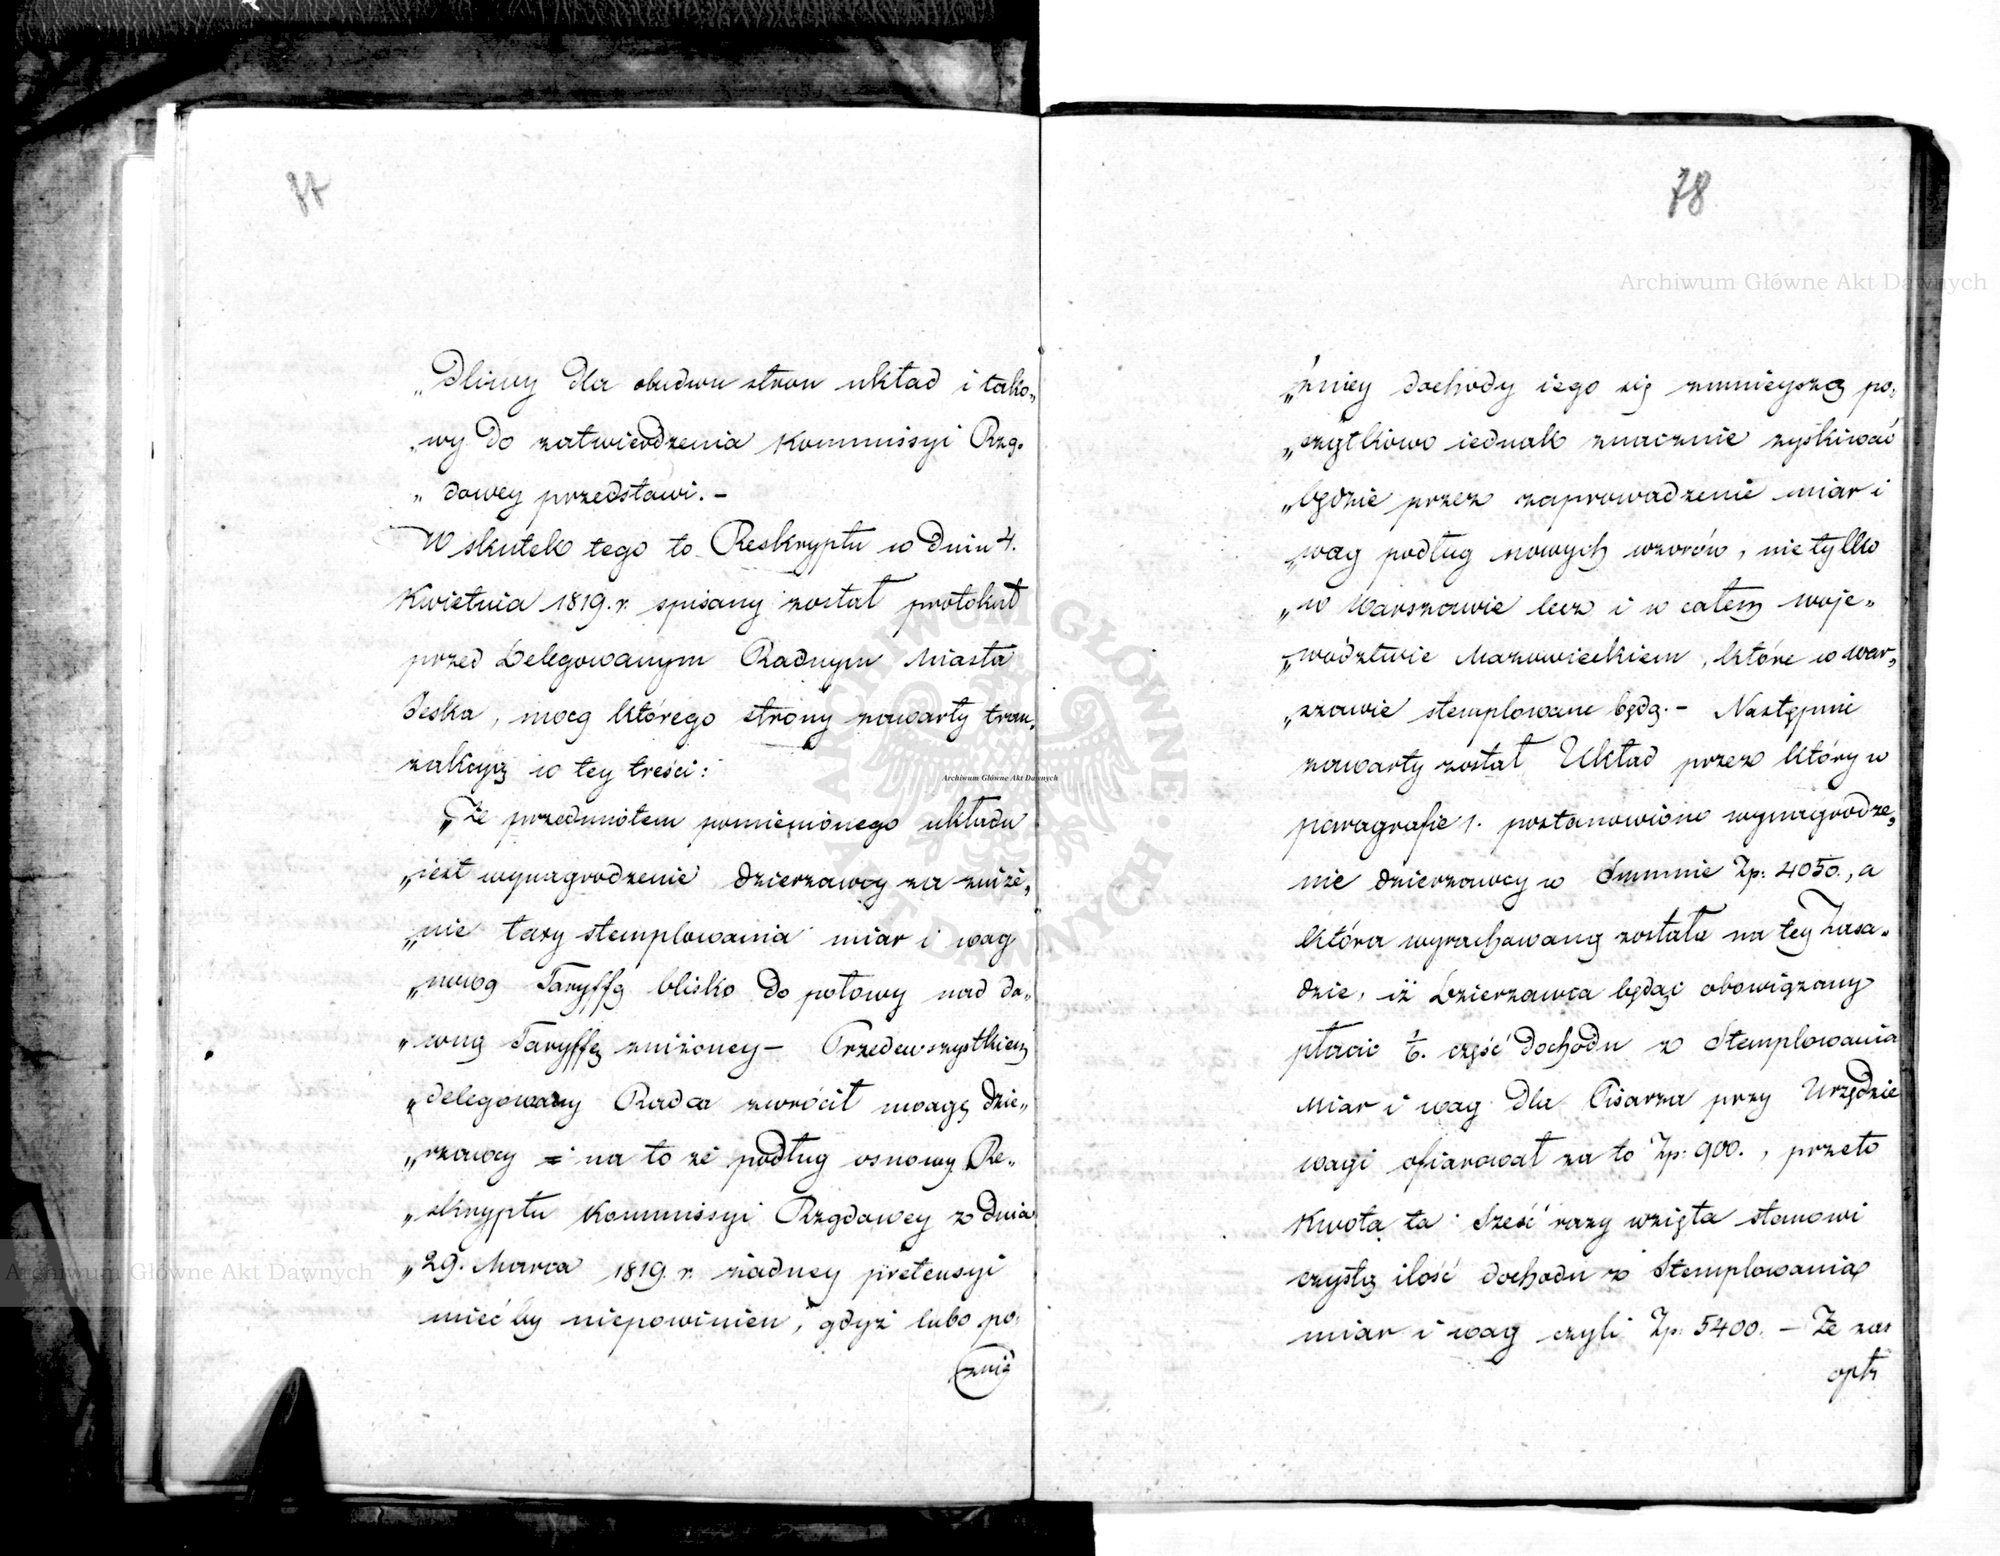 77
„dliwy dla obudwu stron układ i tako„
„wy do zatwierdzenia Kommissyi Rzą„
„dowey przedstawi. –
W skutek tego to Reskryptu w dniu 4.
Kwietnia 1819. r. spisany został protokuł
przed Delegowanym Radnym Miasta
Jeska, mocą którego strony zawarły tran„
zakcyą w tey treści:
„Że przedmiotem pomienionego układu
„iest wynagrodzenie dzierzawcy za zniże„
„nie taxy stemplowania miar i wag
„nową Taryffą blisko do połowy nad da„
„wną Taryffę zniżoney – Przedewszystkiem
„delegowany Radca zwrócił uwagę dzie„
„rzawcy = na to że podług osnowy Re„
„skryptu Kommissyi Rządowey z dnia
„29. Marca 1819. r. żadney pretensyi
mieć by niepowinien, gdyż lubo po„
źnie
78
„źniey dochody iego się zmnieyszą po„
„czątkowo iednak znacznie zyskiwać
„będzie przez zaprowadzenie miar i
„wag podług nowych wzorów, nie tylko
„w Warszawie lecz i w całem woje„
„wództwie Mazowieckiem, które w War„
„szawie stemplowane będą. – Następnie
zawarty został Układ przez który w
paragrafie 1. postanowiono wynagrodze„
nie dzierzawcy w Summie Zp: 4050., a
która wyrachowaną została na tey Zasa„
dzie, iż Dzierzawca będąc obowiązany
płacić 1/6. część dochodu z Stemplowania
Miar i wag dla Pisarza przy Urzędzie
wagi ofiarował za to Zp: 900., przeto
Kwota ta Sześć razy wzięta stanowi
czystą ilość dochodu z Stemplowania
miar i wag czyli Zp: 5400. – Że zas
opła
Archiwum Główne Akt Dawnych
Archiwum Główne Akt Dawnych
Archiwum Główne Akt Dawnych
ARCHIWUM GŁÓWNE AKT DAWNYCH